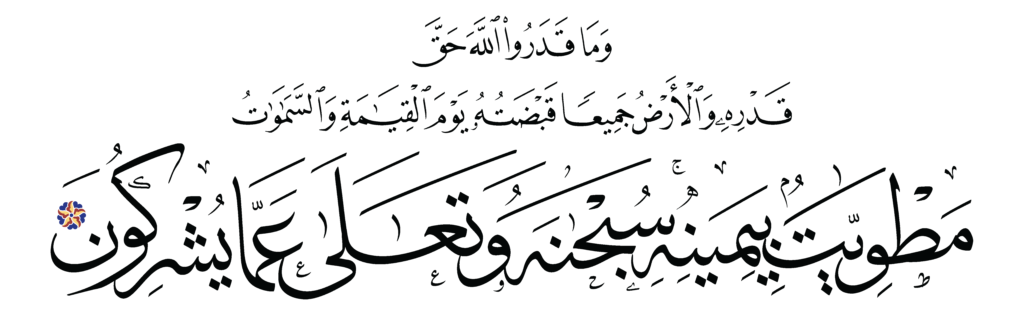 وَمَا قَدَرُوا۟ ٱللَّهَ حَقَّ
قَدْرِهِۦ وَٱلْأَرْضُ جَمِيعًا قَبْضَتُهُۥ يَوْمَ ٱلْقِيَـٰمَةِ وَٱلسَّمَـٰوَٰتُ
مَطْوِيَّـٰتٌۢ بِيَمِينِهِۦ ۚ سُبْحَـٰنَهُۥ وَتَعَـٰلَىٰ عَمَّا يُشْرِكُونَ